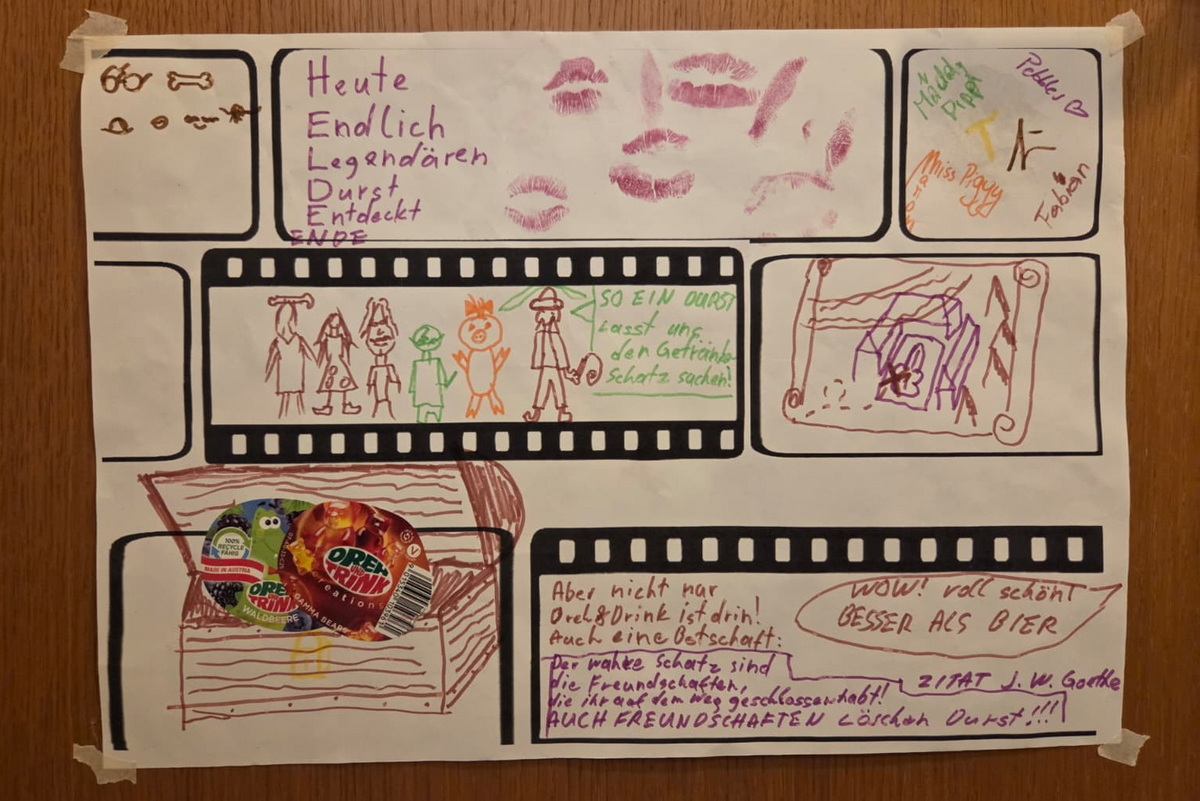 Heute
Endlich
Legendären
Durst
Entdeckt
ENDE
Pebbles
Mädy
Dippi
T
N
Miss Piggy
Fabian
SO EIN DURST
Lasst uns
den Getränke-
Schatz suchen!
100%
RECYCLE
FÄHIG
MADE IN AUSTRIA
DREH
TRINK
WALDBEERE
DREH
TRINK
Creations
GAMMA BEARS
V
Aber nicht nur
Dreh&Drink ist drin!
Auch eine Botschaft:
WOW! voll schön!
BESSER ALS BIER
Der wahre Schatz sind
die Freundschaften,
die ihr auf dem Weg geschlossen habt!
AUCH FREUNDSCHAFTEN Löschen Durst!!!
ZITAT J. W. Goethe